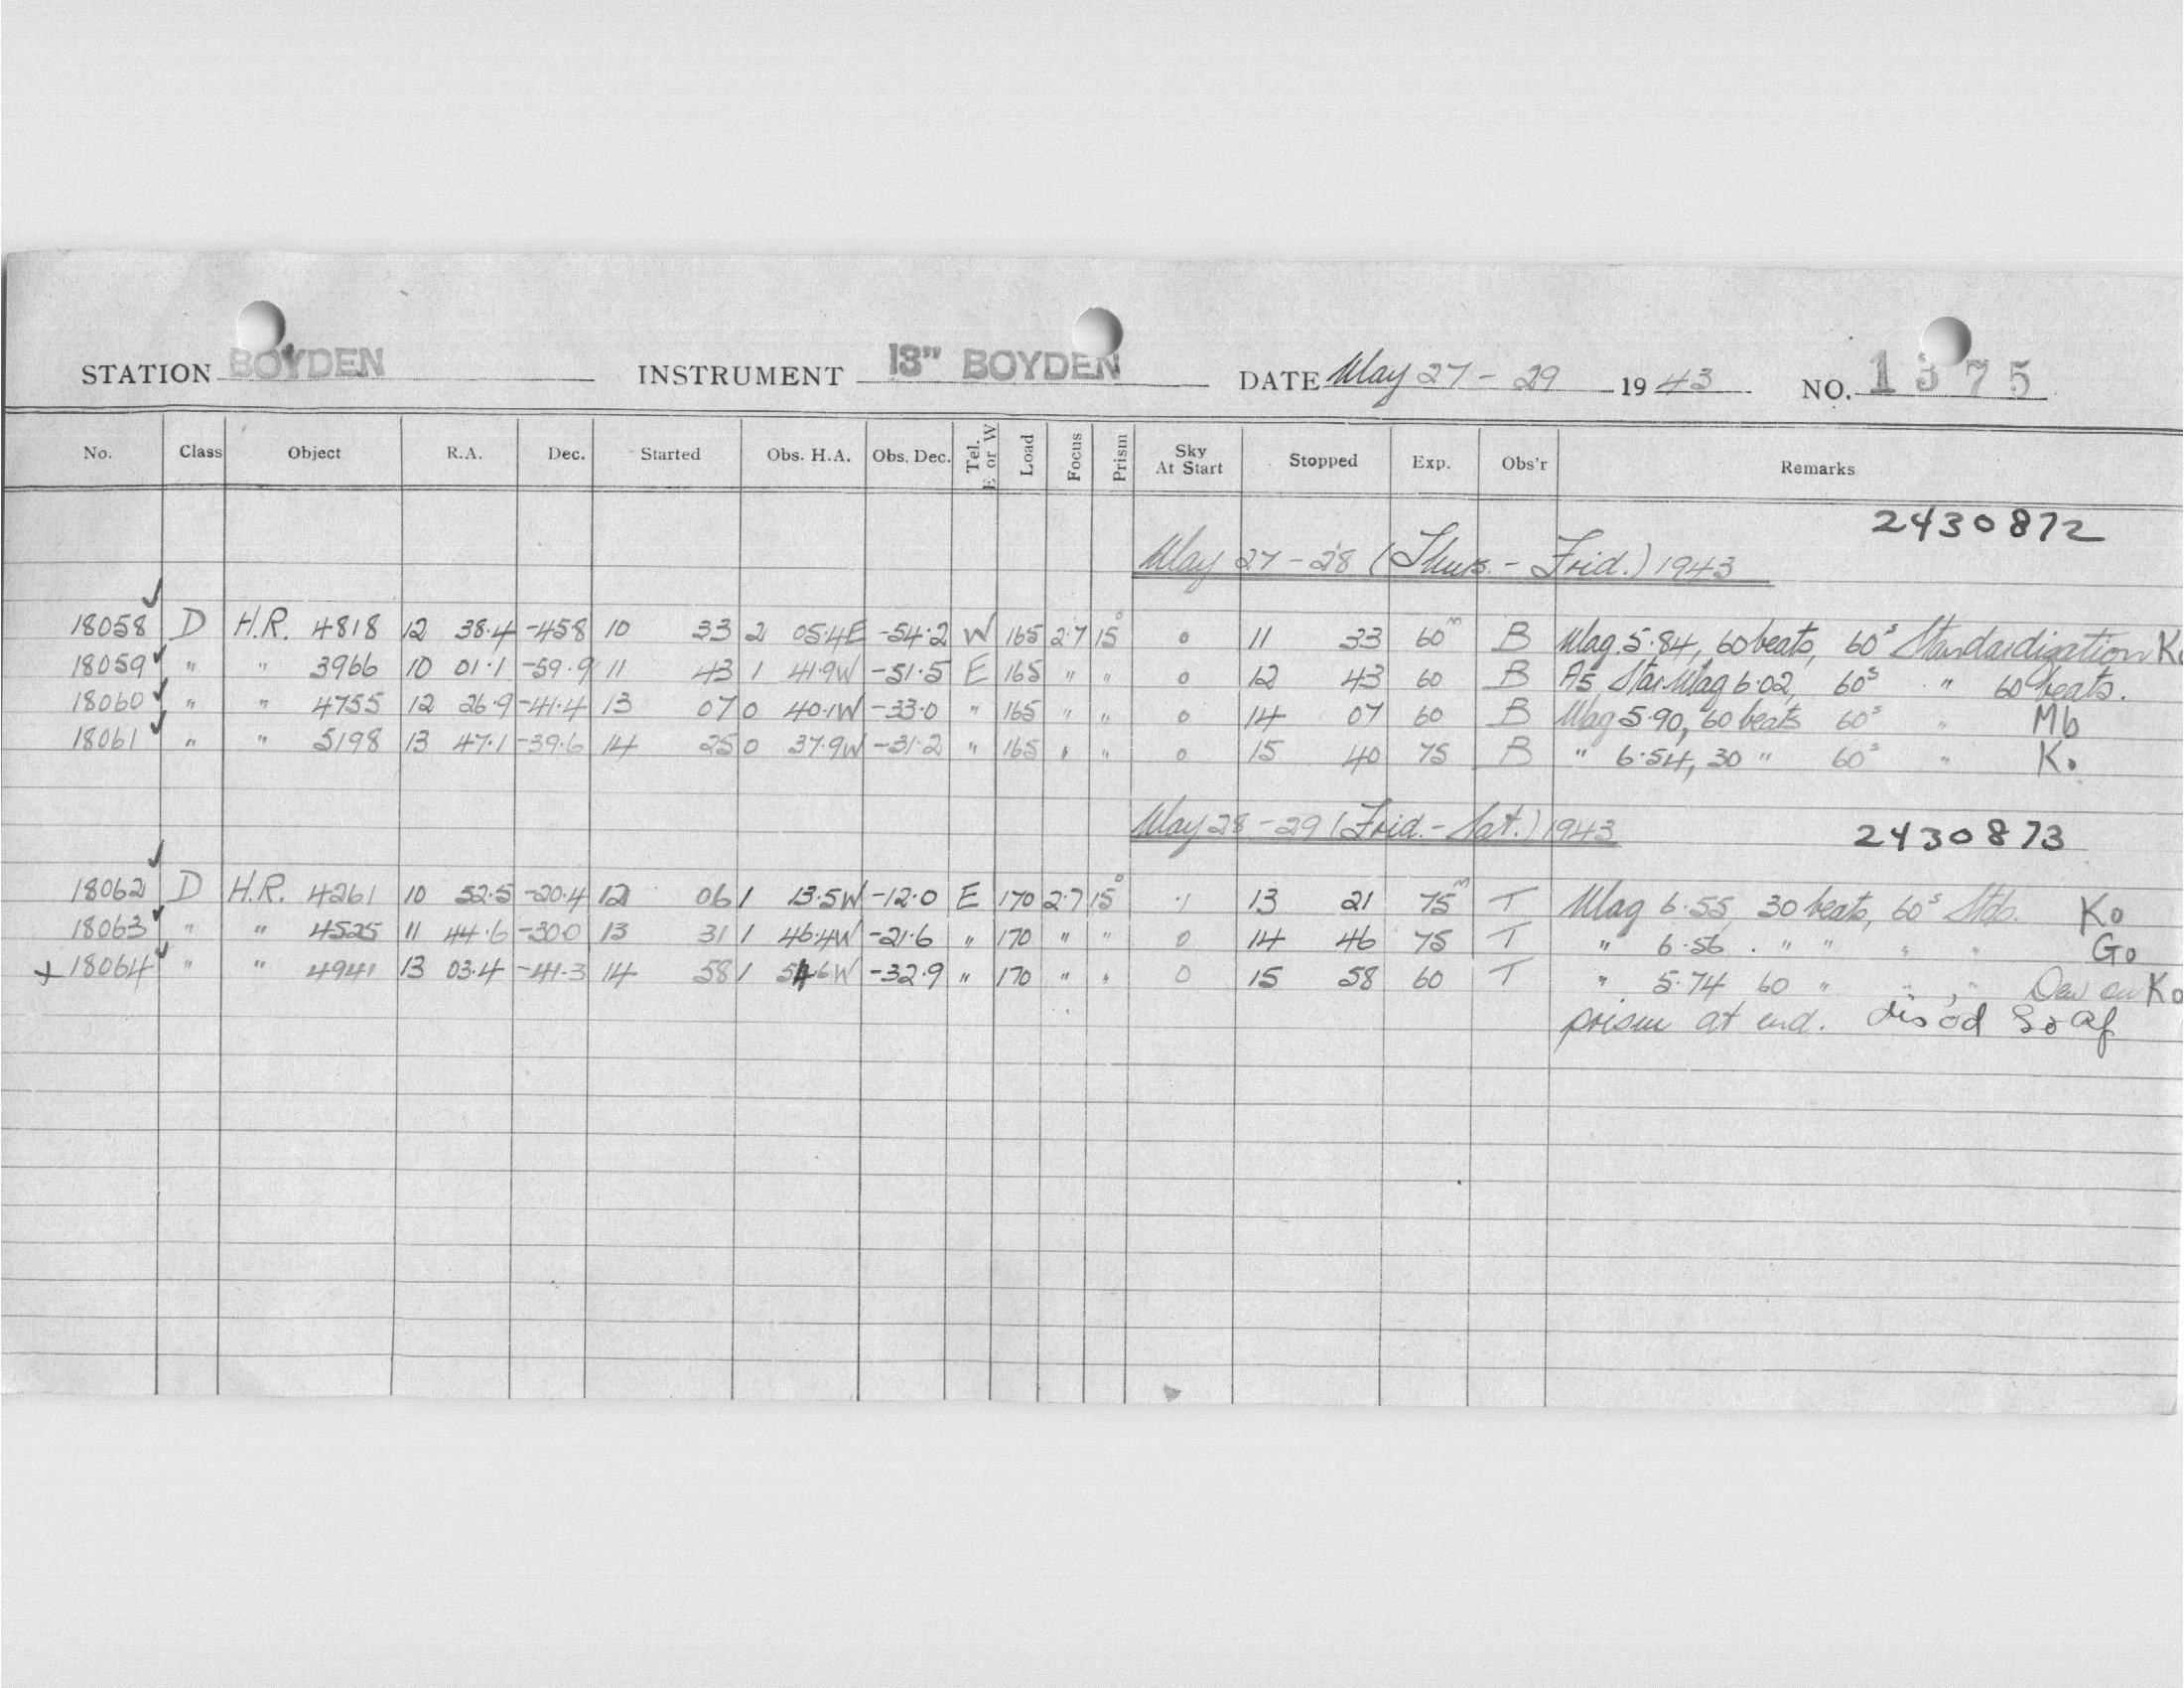 STATION BOYDEN INSTRUMENT 13" BOYDEN DATE May 27 - 29 1943 NO. 1375
No. Class Object R.A. Dec. Started Obs. H.A. Obs. Dec. Tel. E or W Load Focus Prism Sky At Start Stopped Exp. Obs'r Remarks
2430872
May 27-28 (Thurs.-Frid.) 1943
18058 ✓ D H.R. 4818 12 38.4 -45.8 10 33 2 05.4E -54.2 W 165 2.7 15° 0 11 33 60m B Mag. 5.84, 60 beats, 60s Standardization Ko
18059 ✓ " " 3966 10 01.1 -59.9 11 43 1 41.9W -51.5 E 165 " " 0 12 43 60 B A5 Star Mag 6.02, 60s " 60 beats.
18060 ✓ " " 4755 12 26.9 -41.4 13 07 0 40.1W -33.0 " 165 " " 0 14 07 60 B Mag 5.90, 60 beats 60s " Mb
18061 ✓ " " 5198 13 47.1 -39.6 14 25 0 37.9W -31.2 " 165 " " 0 15 40 75 B " 6.54, 30 " 60s " Ko
May 28-29 (Frid.-Sat.) 1943 2430873
18062 ✓ D H.R. 4261 10 52.5 -20.4 12 06 1 13.5W -12.0 E 170 2.7 15° .1 13 21 75m T Mag 6.55, 30 beats, 60s Std. Ko
18063 ✓ " " 4525 11 44.6 -30.0 13 31 1 46.4W -21.6 " 170 " " 0 14 46 75 T " 6.56 . " " " " Go
+ 18064 ✓ " " 4941 13 03.4 -41.3 14 58 1 54.6W -32.9 " 170 " " 0 15 58 60 T " 5.74 60 " " , " Dew on Ko
prism at end. dis'd